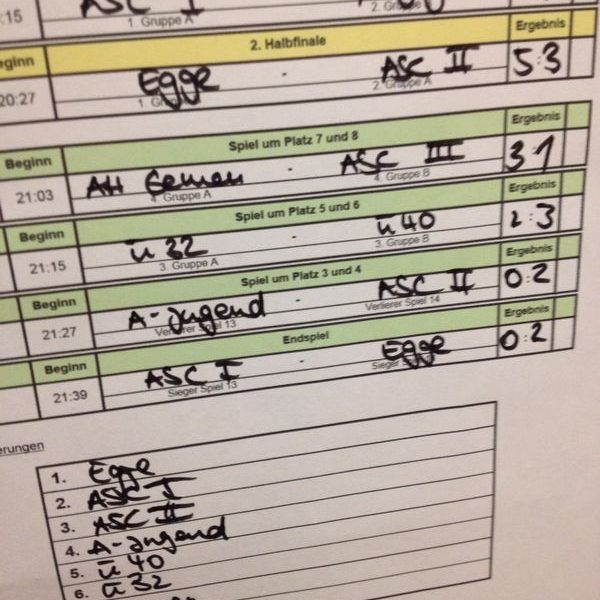 :15 ASC I
1. Gruppe A 2. Gruppe
2. Halbfinale Ergebnis
Beginn
20:27 Egge - ASC II 5:3
1. Gruppe 2. Gruppe A
Beginn Spiel um Platz 7 und 8 Ergebnis
21:03 AH - ASC III 3:1
4. Gruppe A 4. Gruppe B
Beginn Spiel um Platz 5 und 6 Ergebnis
21:15 ü 32 - ü 40 2:3
3. Gruppe A 3. Gruppe B
Beginn Spiel um Platz 3 und 4 Ergebnis
21:27 A-Jugend - ASC II 0:2
Verlierer Spiel 13 Verlierer Spiel 14
Beginn Endspiel Ergebnis
21:39 ASC I - Egge 0:2
Sieger Spiel 13 Sieger
erungen
1. Egge
2. ASC I
3. ASC II
4. A-Jugend
5. ü 40
6. ü 32